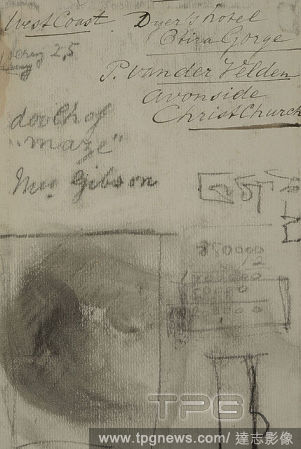 West Coast Dyer's Hotel
Otira Gorge
2,5
P. van der Velden
avonside
ChristChurch
doolhof
"maze"
Gibson
TPG
www.tpgnews.com/達志影像